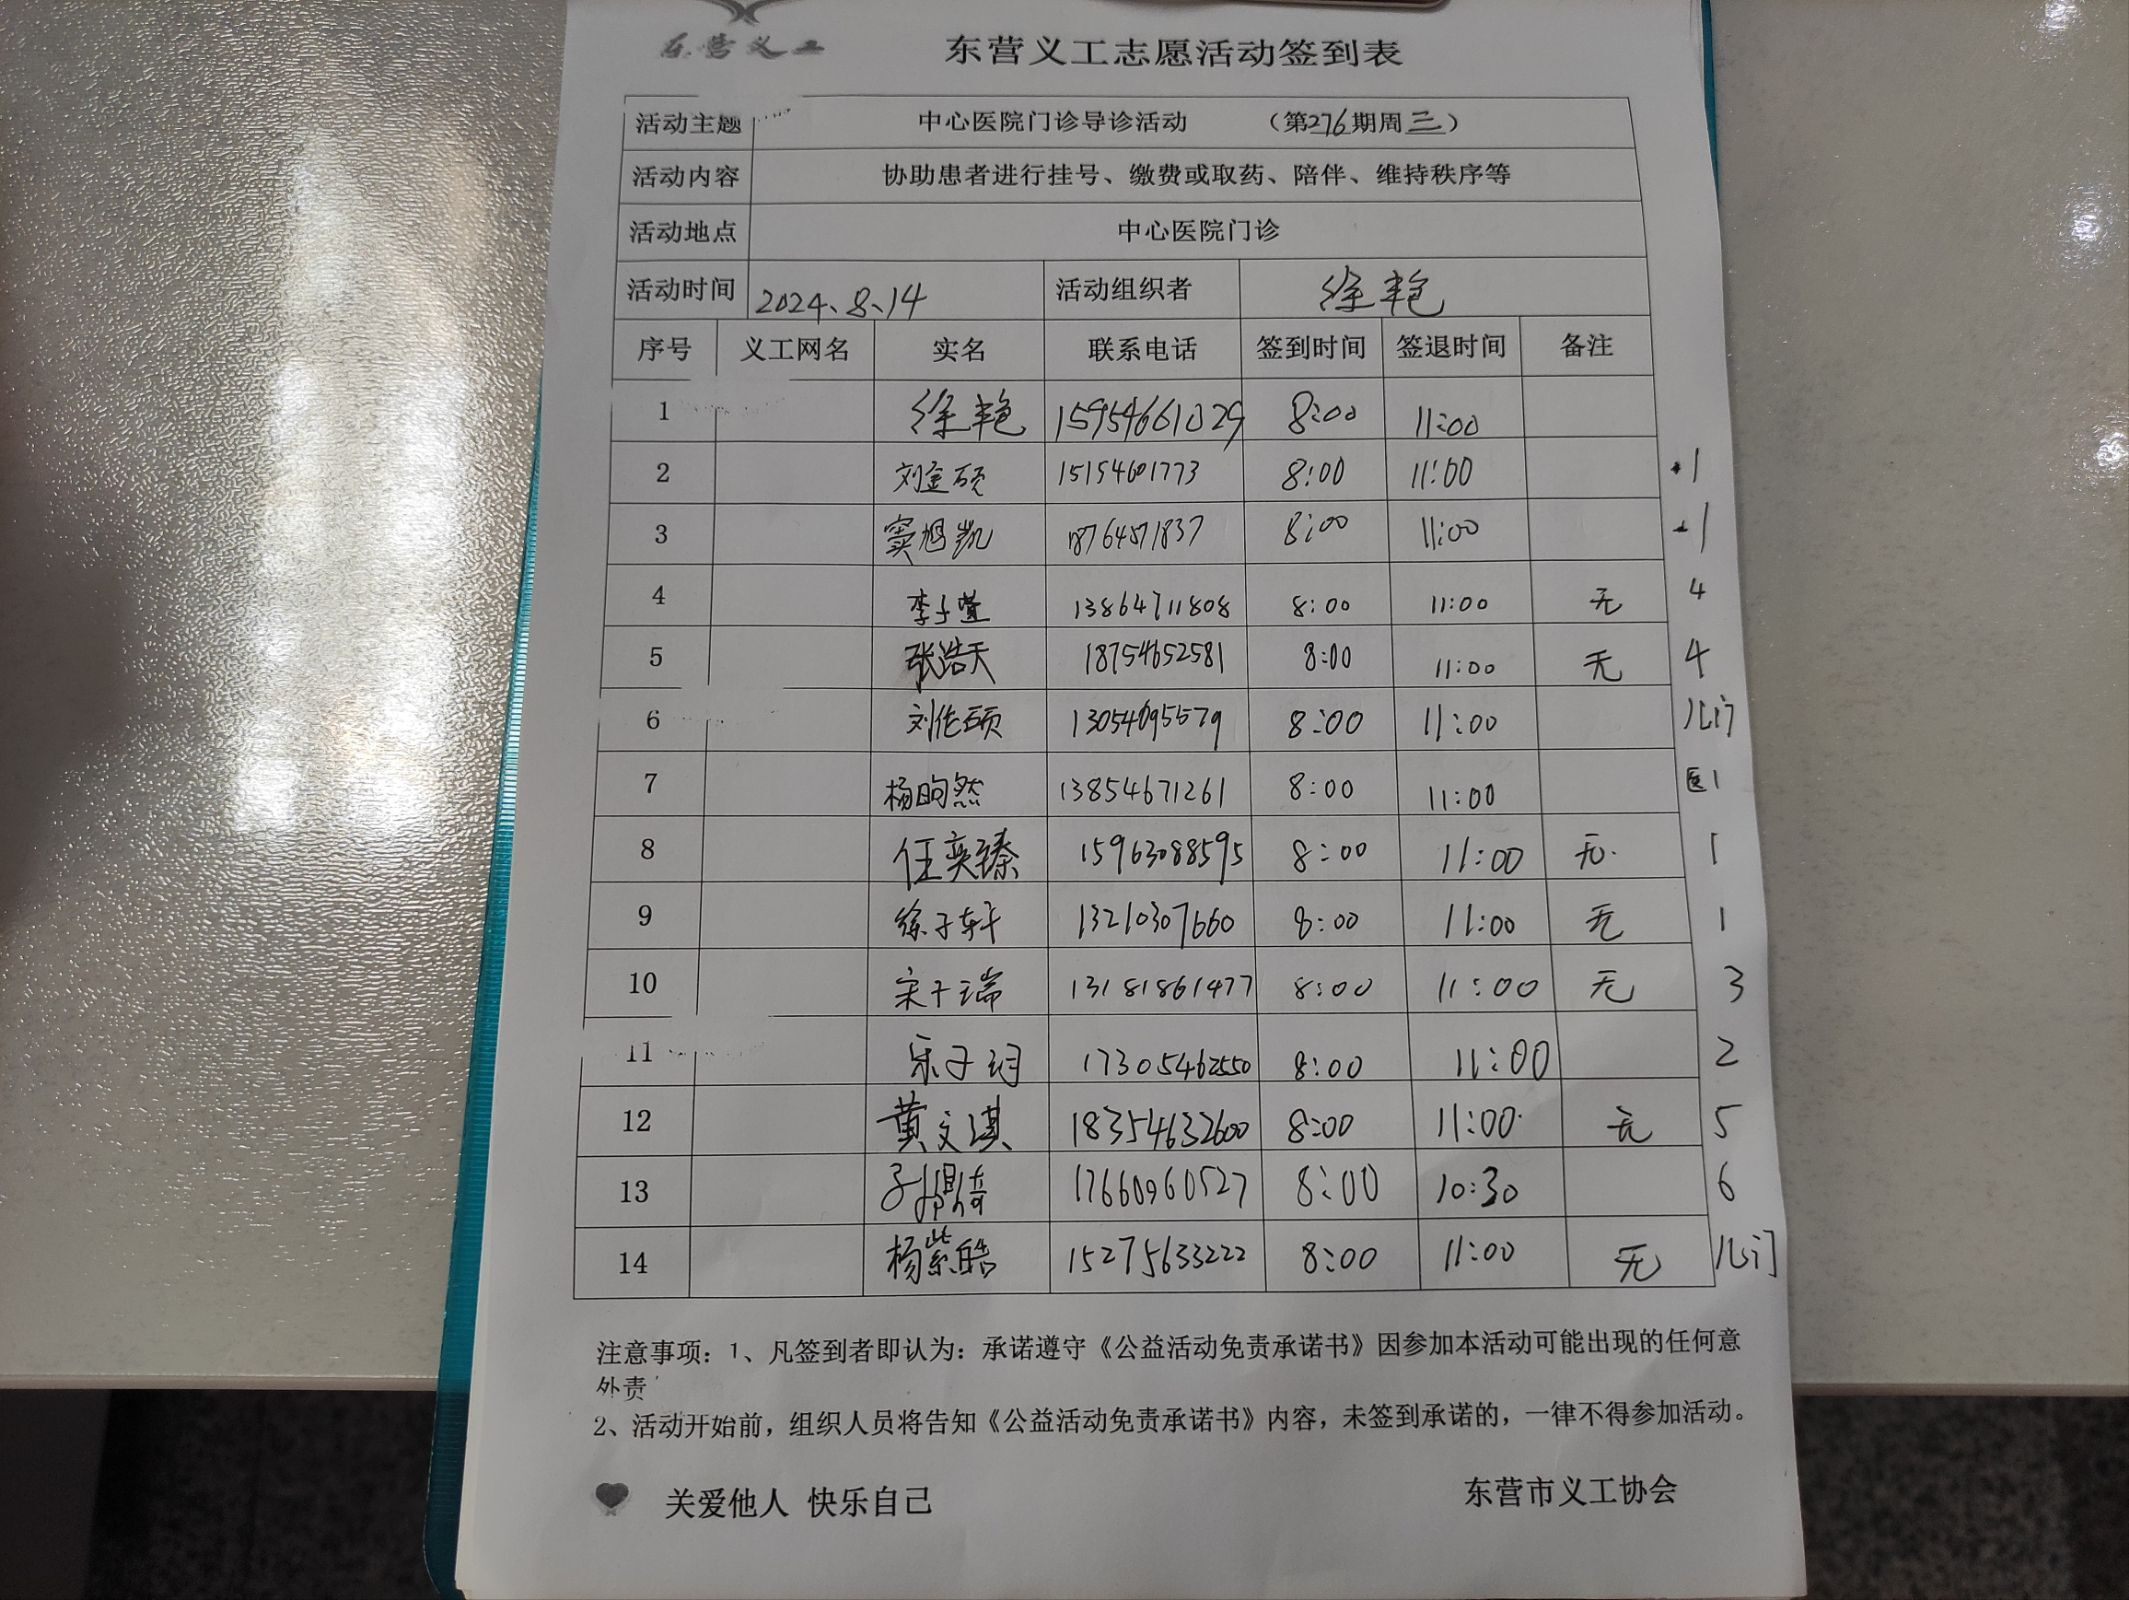 东营义工
东营义工志愿活动签到表
活动主题 中心医院门诊导诊活动 (第276期周三)
活动内容 协助患者进行挂号、缴费或取药、陪伴、维持秩序等
活动地点 中心医院门诊
活动时间 2024、8、14 活动组织者 徐艳
序号 义工网名 实名 联系电话 签到时间 签退时间 备注
1 徐艳 15954661029 8:00 11:00
2 刘金硕 15154601773 8:00 11:00 1
3 窦旭凯 18764571837 8:00 11:00 1
4 李子萱 13864711808 8:00 11:00 无 4
5 张浩天 18754652581 8:00 11:00 无 4
6 8:00 11:00 儿门
7 杨昫然 13854671261 8:00 11:00 医1
8 任奕臻 15963088595 8:00 11:00 无. 1
9 徐子轩 13210307660 8:00 11:00 无 1
10 宋子瑞 13181861477 8:00 11:00 无 3
11 17305462550 8:00 11:00 2
12 黄文淇 18354632600 8:00 11:00 无 5
13 17660960527 8:00 10:30 6
14 杨紫皓 15275633222 8:00 11:00 无 儿门
注意事项：1、凡签到者即认为：承诺遵守《公益活动免责承诺书》因参加本活动可能出现的任何意
外责
2、活动开始前，组织人员将告知《公益活动免责承诺书》内容，未签到承诺的，一律不得参加活动。
关爱他人 快乐自己
东营市义工协会